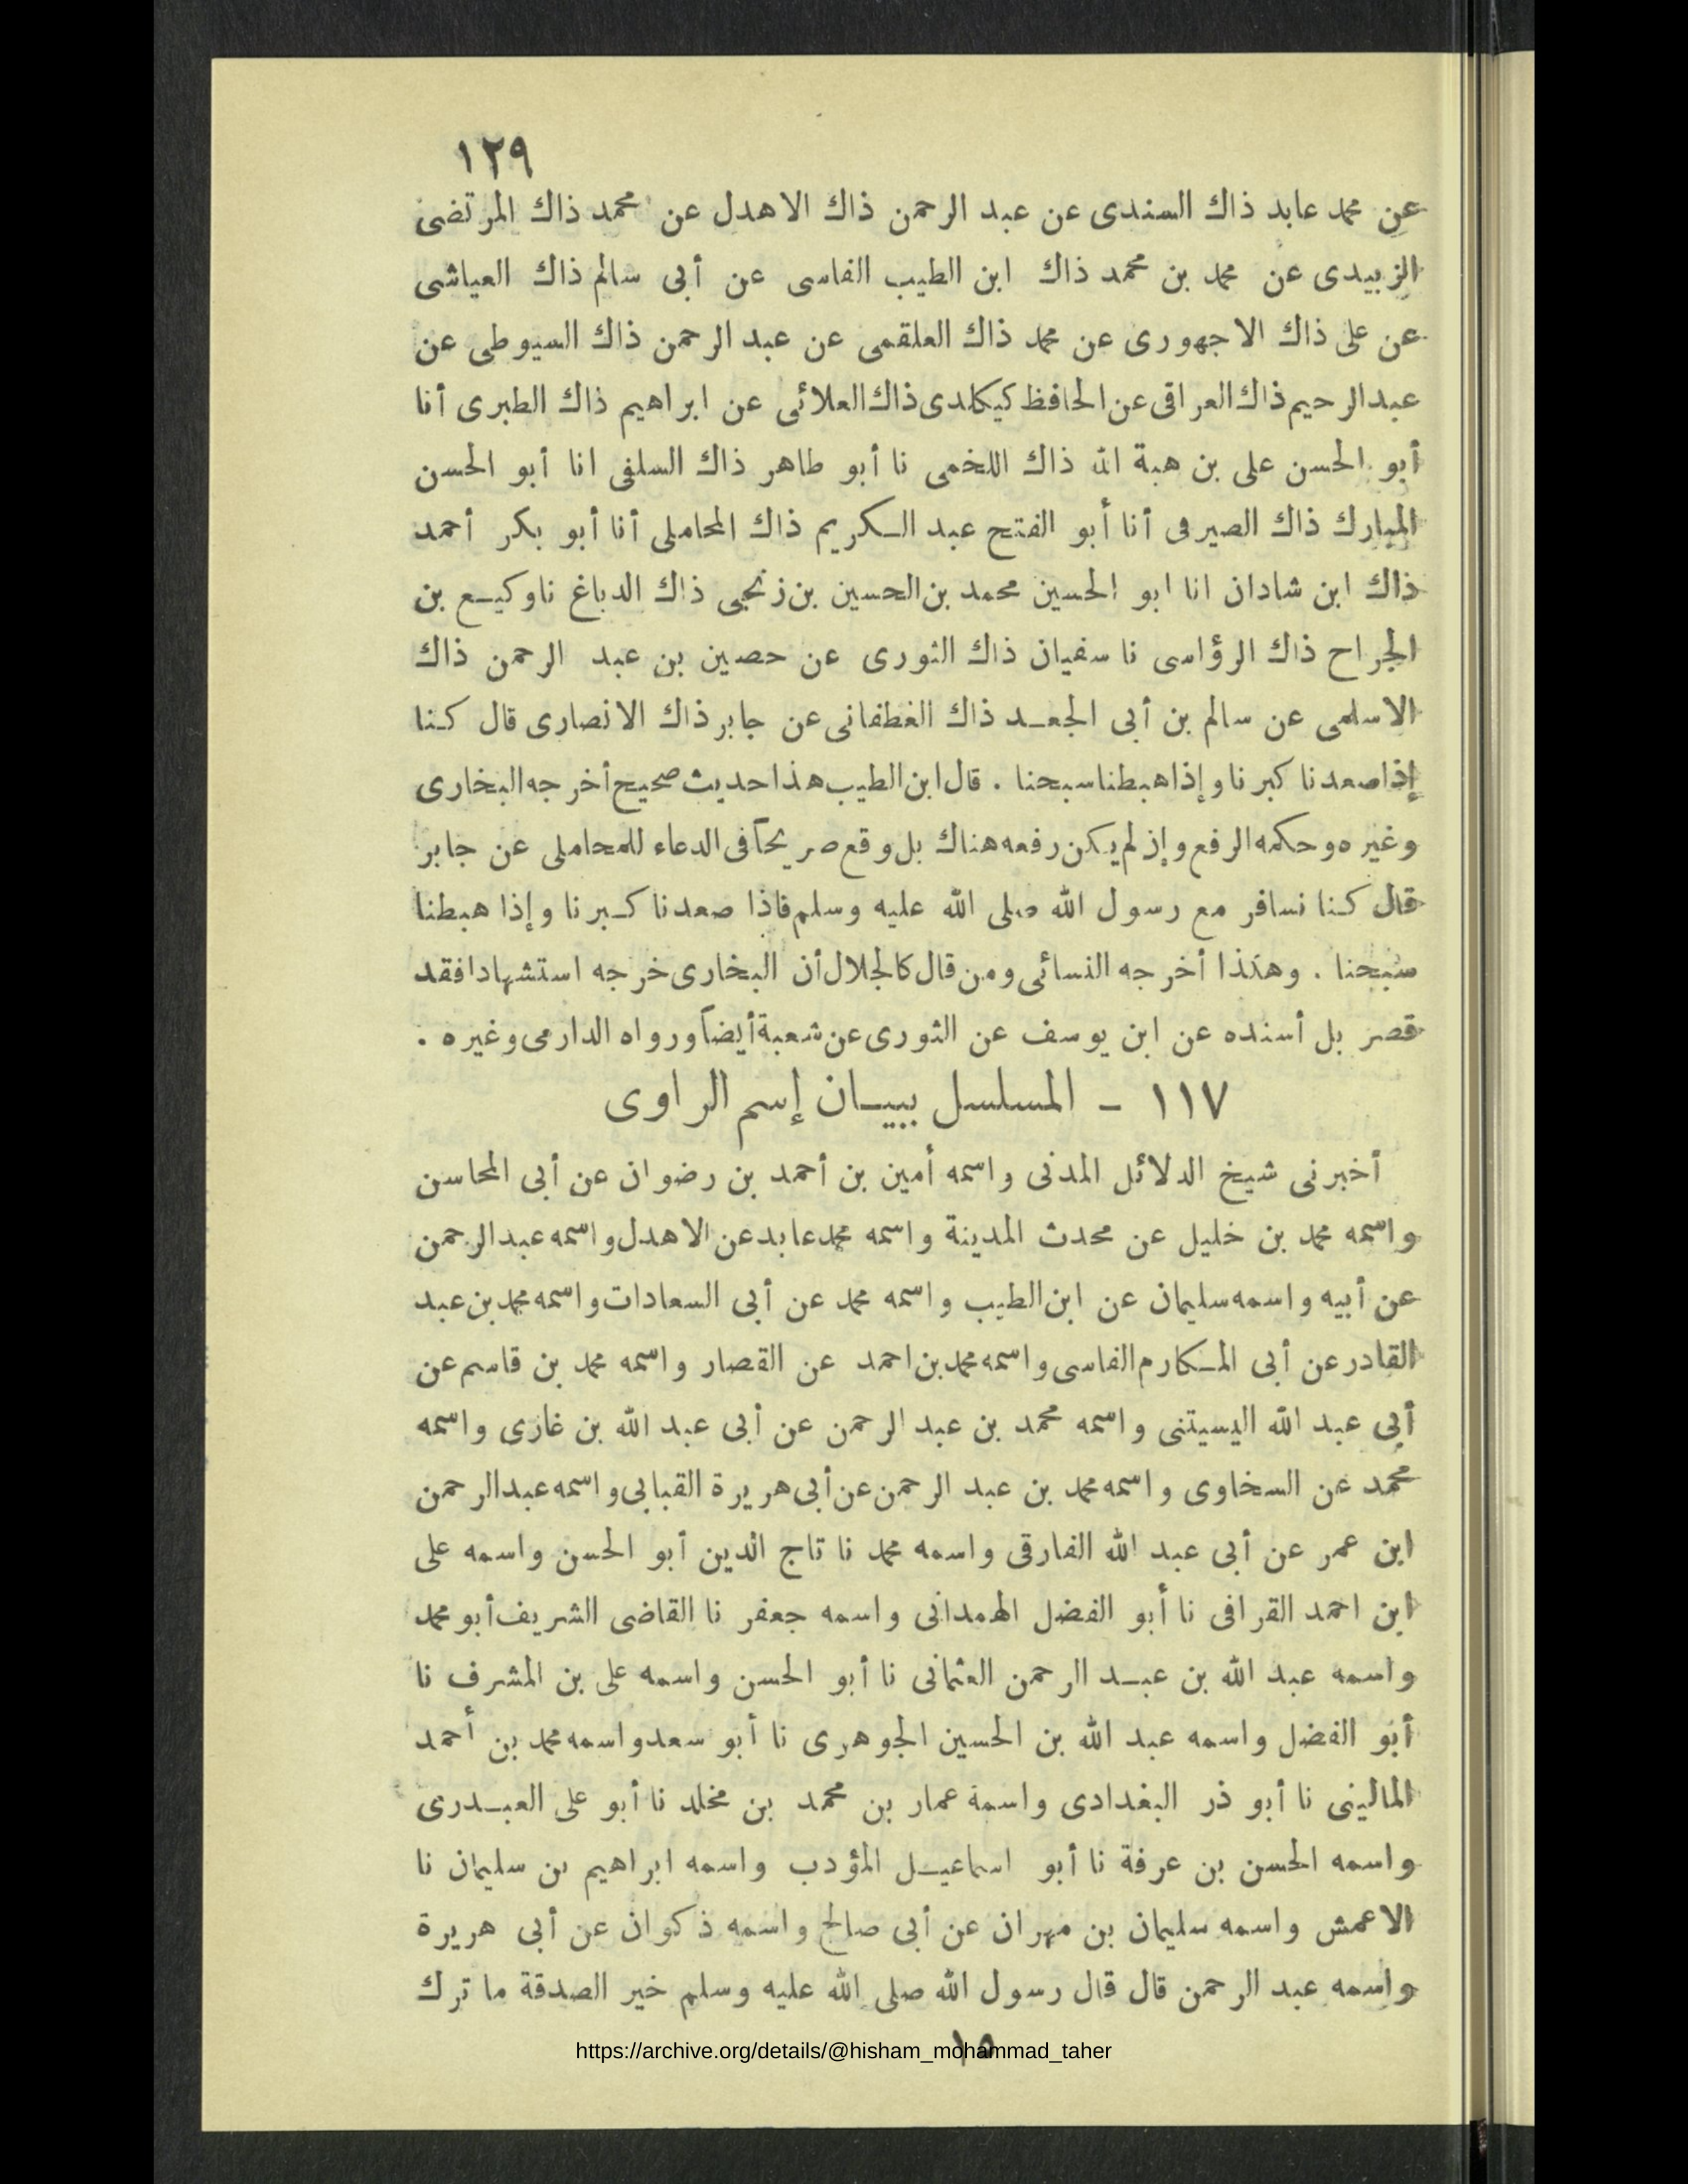 ١٢٩
عن محمد عابد ذاك السندى عن عبد الرحمن ذاك الاهدل عن محمد ذاك المرتضى
الزبيدى عن محمد بن محمد ذاك ابن الطيب الفاسى عن أبى سالم ذاك العياشى
عن على ذاك الاجهورى عن محمد ذاك العلقمى عن عبد الرحمن ذاك السيوطى عن
عبد الرحيم ذاك العراقى عن الحافظ كيكلدى ذاك العلائى عن ابراهيم ذاك الطبرى أنا
أبو الحسن على بن هبة الله ذاك اللخمى نا أبو طاهر ذاك السلفى انا أبو الحسن
المبارك ذاك الصيرفى أنا أبو الفتح عبد الكريم ذاك المحاملى أنا أبو بكر أحمد
ذاك ابن شاذان انا ابو الحسين محمد بن الحسين بن زنجى ذاك الدباغ نا وكيع بن
الجراح ذاك الرؤاسى نا سفيان ذاك الثورى عن حصين بن عبد الرحمن ذاك
الاسلمى عن سالم بن أبى الجعد ذاك الغطفانى عن جابر ذاك الانصارى قال كنا
إذا صعدنا كبرنا وإذا هبطنا سبحنا . قال ابن الطيب هذا حديث صحيح أخرجه البخارى
وغيره وحكمه الرفع وإن لم يكن رفعه هناك بل وقع صريحاً فى الدعاء للمحاملى عن جابر
قال كنا نسافر مع رسول الله صلى الله عليه وسلم فاذا صعدنا كبرنا وإذا هبطنا
سبحنا . وهكذا أخرجه النسائى ومن قال كالجلال أن البخارى خرجه استشهادا فقد
قصر بل أسنده عن ابن يوسف عن الثورى عن شعبة أيضاً ورواه الدارمى وغيره .
١١٧ - المسلسل ببيان إسم الراوى
أخبرنى شيخ الدلائل المدنى واسمه أمين بن أحمد بن رضوان عن أبى المحاسن
واسمه محمد بن خليل عن محدث المدينة واسمه محمد عابد عن الاهدل واسمه عبد الرحمن
عن أبيه واسمه سليمان عن ابن الطيب واسمه محمد عن أبى السعادات واسمه محمد بن عبد
القادر عن أبى المكارم الفاسى واسمه محمد بن احمد عن القصار واسمه محمد بن قاسم عن
أبى عبد الله اليسيتنى واسمه محمد بن عبد الرحمن عن أبى عبد الله بن غازى واسمه
محمد عن السخاوى واسمه محمد بن عبد الرحمن عن أبى هريرة القبابى واسمه عبد الرحمن
ابن عمر عن أبى عبد الله الفارقى واسمه محمد نا تاج الدين أبو الحسن واسمه على
ابن احمد القرافى نا أبو الفضل الهمدانى واسمه جعفر نا القاضى الشريف أبو محمد
واسمه عبد الله بن عبد الرحمن العثمانى نا أبو الحسن واسمه على بن المشرف نا
أبو الفضل واسمه عبد الله بن الحسين الجوهرى نا أبو سعد واسمه محمد بن أحمد
المالينى نا أبو ذر البغدادى واسمه عمار بن محمد بن مخلد نا أبو على العبدرى
واسمه الحسن بن عرفة نا أبو اسماعيل المؤدب واسمه ابراهيم بن سليمان نا
الاعمش واسمه سليمان بن مهران عن أبى صالح واسمه ذكوان عن أبى هريرة
واسمه عبد الرحمن قال قال رسول الله صلى الله عليه وسلم خير الصدقة ما ترك
https://archive.org/details/@hisham_mohammad_taher